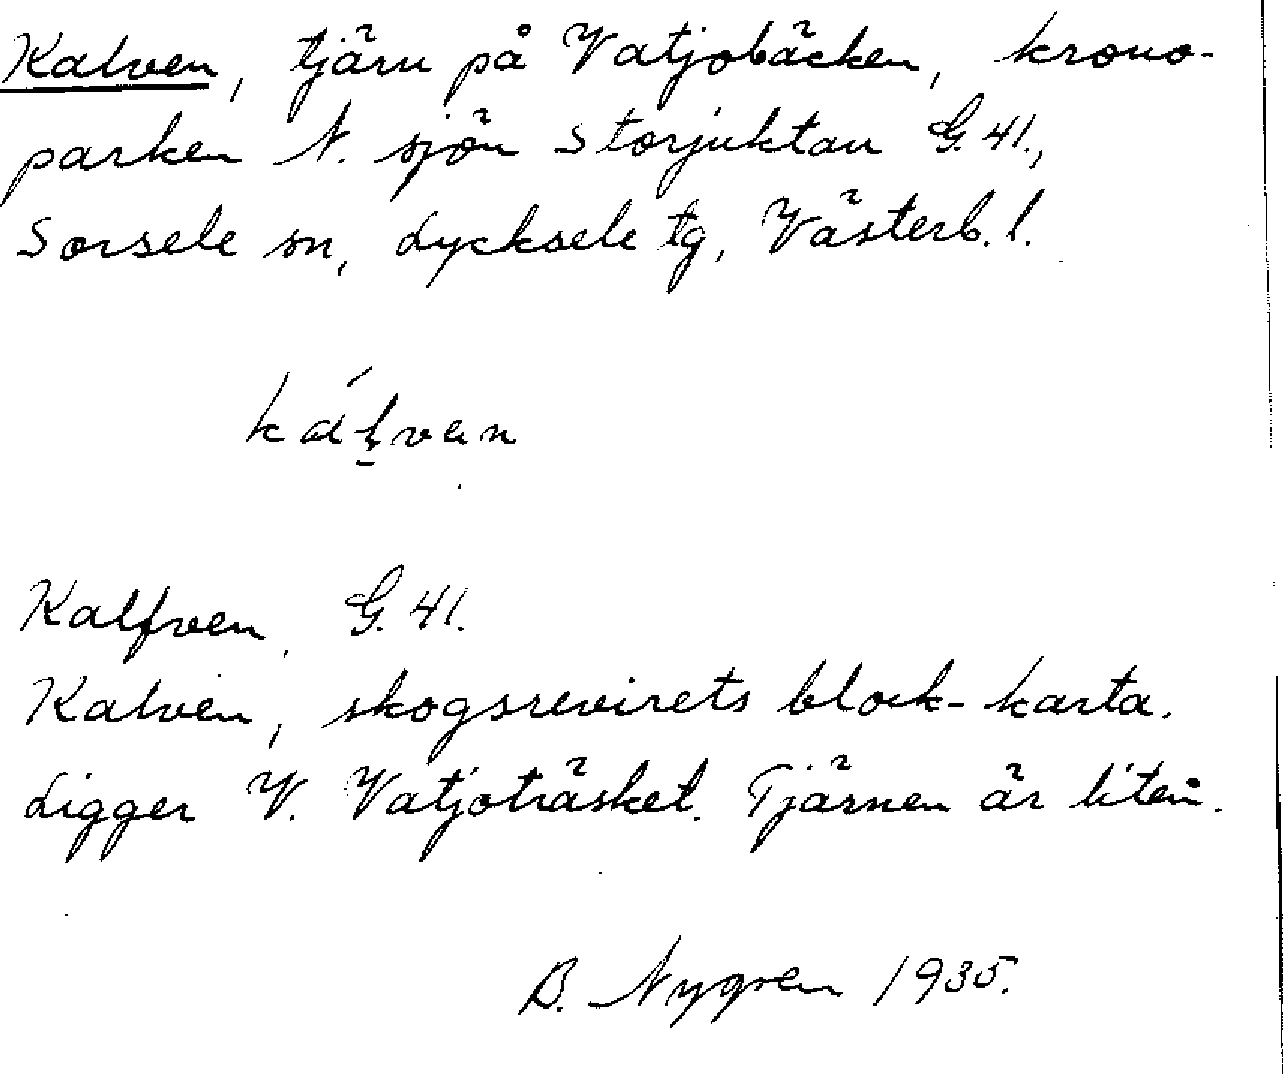 Kalven, tjärn på Vatjobäcken, krono-
parken N. sjön Storjuktan G. 41.,
Sorsele sn, Lycksele tg, Västerb. l.
Kalfven, G. 41.
Kalven, skogsrevirets block-karta.
Ligger V. Vatjoträsket. Tjärnen är liten.
B. Nygren 1935.